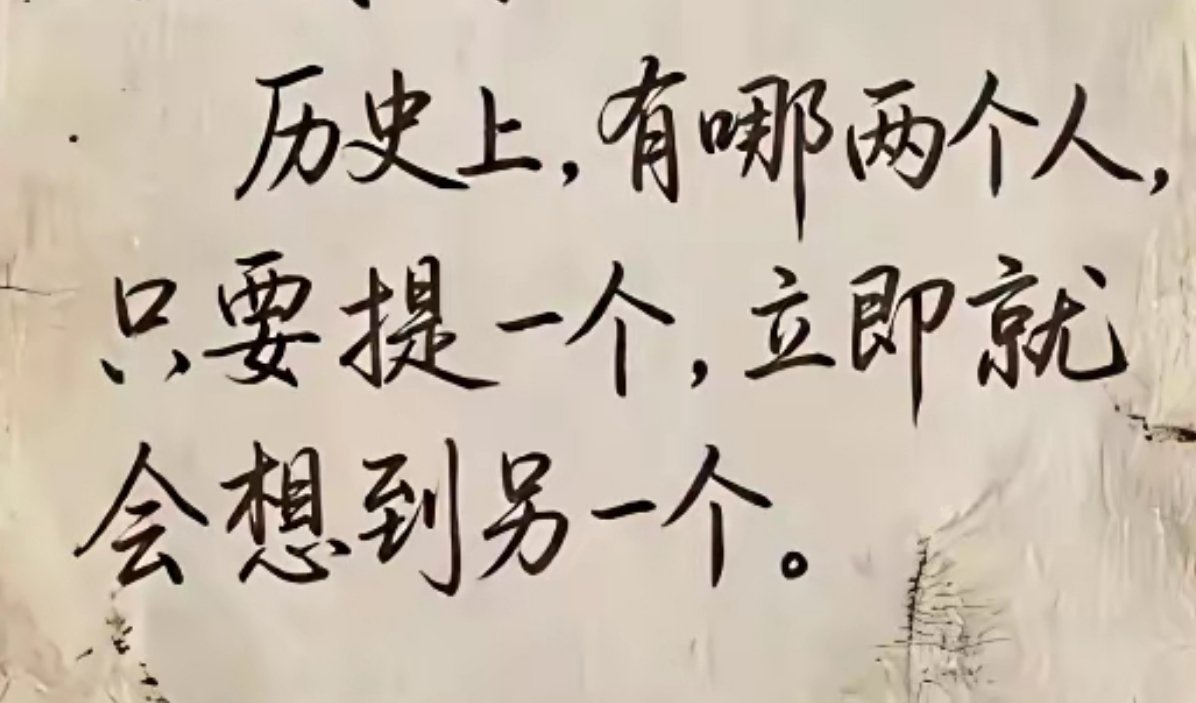 历史上,有哪两个人,
只要提一个,立即就
会想到另一个。